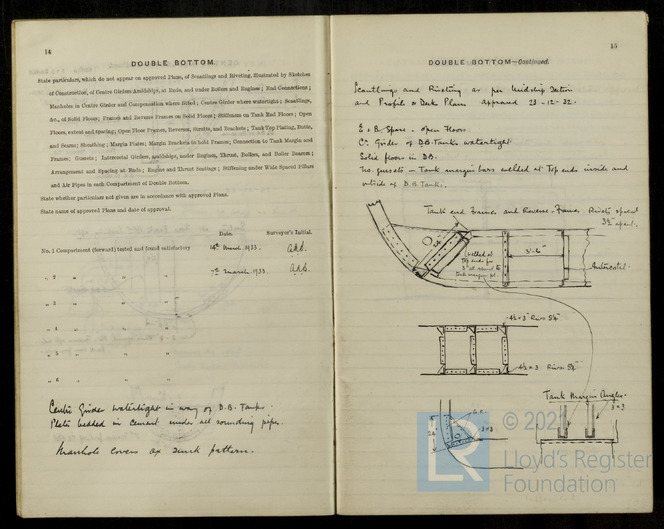 14
DOUBLE BOTTOM.
State particulars, which do not appear on approved Plans, of Scantlings and Riveting, illustrated by Sketches
of Construction, of Centre Girders Amidships, at Ends, and under Boilers and Engines; End Connections;
Manholes in Centre Girder and Compensation where fitted; Centre Girder where watertight; Scantlings,
&c., of Solid Floors; Frames and Reverse Frames on Solid Floors; Stiffeners on Tank End Floors; Open
Floors, extent and spacing; Open Floor Frames, Reverses, Struts, and Brackets; Tank Top Plating, Butts,
and Seams; Sheathing; Margin Plates; Margin Brackets to hold Frames; Connection to Tank Margin and
Frames; Gussets; Intercostal Girders, amidships, under Engines, Thrust, Boilers, and Boiler Bearers;
Arrangement and Spacing at Ends; Engine and Thrust Seatings; Stiffening under Wide Spaced Pillars
and Air Pipes in each Compartment of Double Bottom.
State whether particulars not given are in accordance with approved Plans.
State name of approved Plans and date of approval.
Date. Surveyor's Initial.
No. 1 Compartment (forward) tested and found satisfactory 14th March, 1933.
„ 2 „ „ „ 7th March, 1933.
„ 3 „ „ „
„ 4 „ „ „
„ 5 „ „ „
„ 6 „ „ „
Centre Girder watertight in way of D.B. Tanks.
Plates bedded in cement under all sounding pipes.
Manhole covers ox sunk pattern.
15
DOUBLE BOTTOM—Continued.
Scantlings and Riveting as per Midship Section
and Profile & Deck Plans approved 23-12-32.
E & B Space - open floors
Cr. Girder of D.B. Tanks watertight
Solid floors in D.B.
No gussets - Tank margin bars welded at Top ends inside and
outside of D.B. Tanks.
Tank end Frames and Reverse Frames Rivets spaced
3½" apart.
welded at
top ends for
3" all round to
tank margin pl.
3'-6"
Intercostal.
4½ × 3 Rivs 5¼"
4½ × 3 Rivs 5¼"
Tank Margin Angles.
3 × 3
3 × 3
24"
© 2021
LR
Lloyd's Register
Foundation